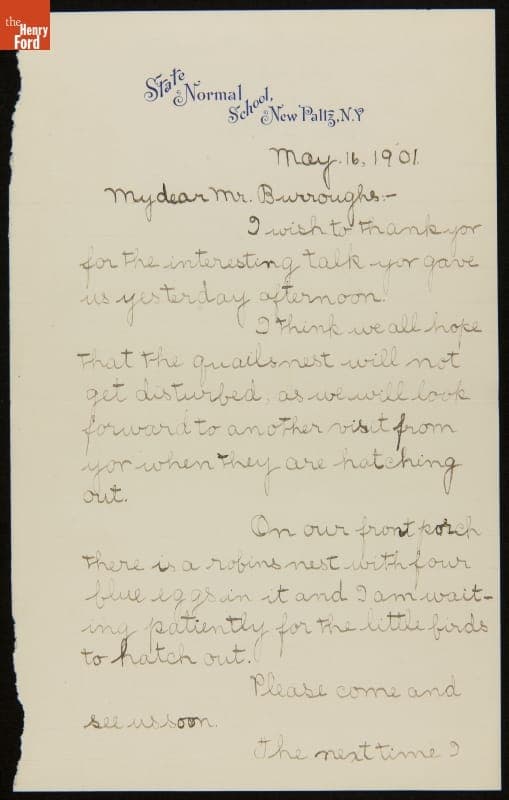 the
Henry
Ford
State Normal School,
New Paltz, N.Y
May. 16, 1901.
My dear Mr. Burroughs:-
I wish to thank yor
for the interesting talk yor gave
us yesterday afternoon.
I think we all hope
that the quails nest will not
get disturbed, as we will look
forward to another visit from
yor when they are hatching
out.
On our front porch
there is a robins nest with four
blue eggs in it and I am wait-
ing patiently for the little birds
to hatch out.
Please come and
see us soon.
The next time I